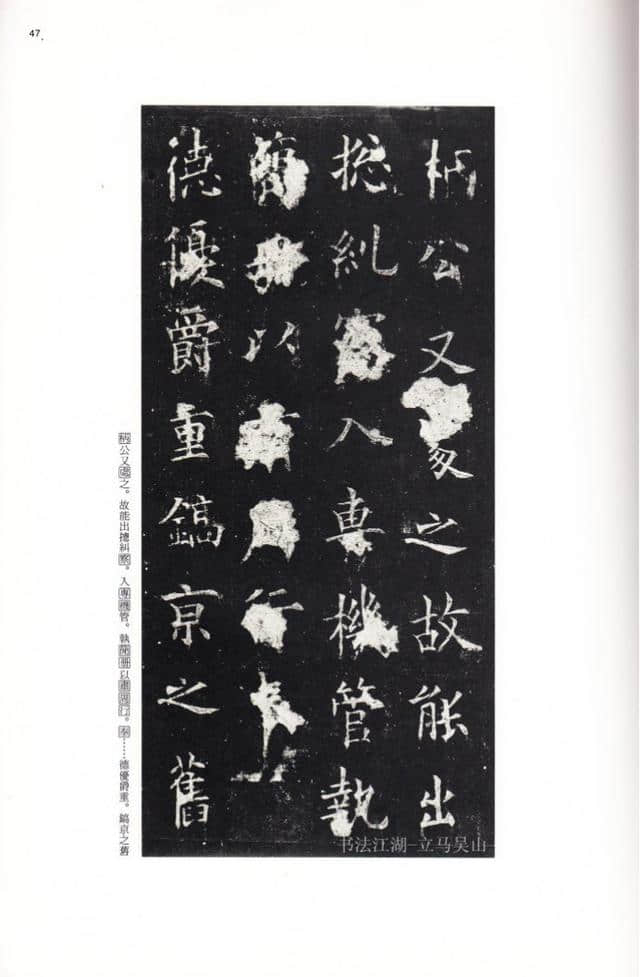 47
柄公又處之故能出
揔糺察入專機管執
簡以行
德優爵重鎬京之舊
柄公又處之。故能出揔糾察。入專機管。執簡冊以肅周行。奉……德優爵重。鎬京之舊
书法江湖-立马吴山-